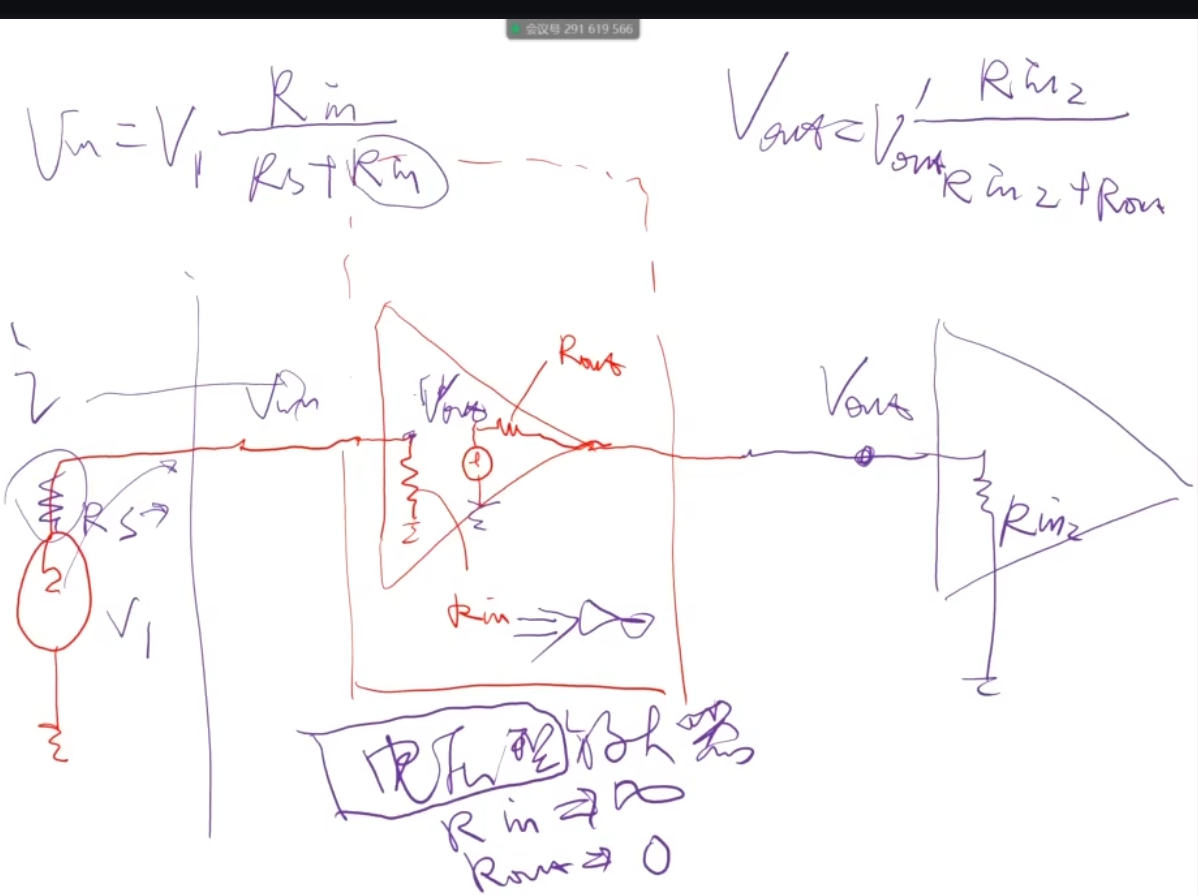 会议号 291 619 566
Vin = V1 Rin / (Rs + Rin)
Vout = Vout' Rin2 / (Rin2 + Rout)
Rout
Vin
Vout
Vout
Rs
Rin2
V1
Rin
电压型放大器
Rin → ∞
Rout → 0